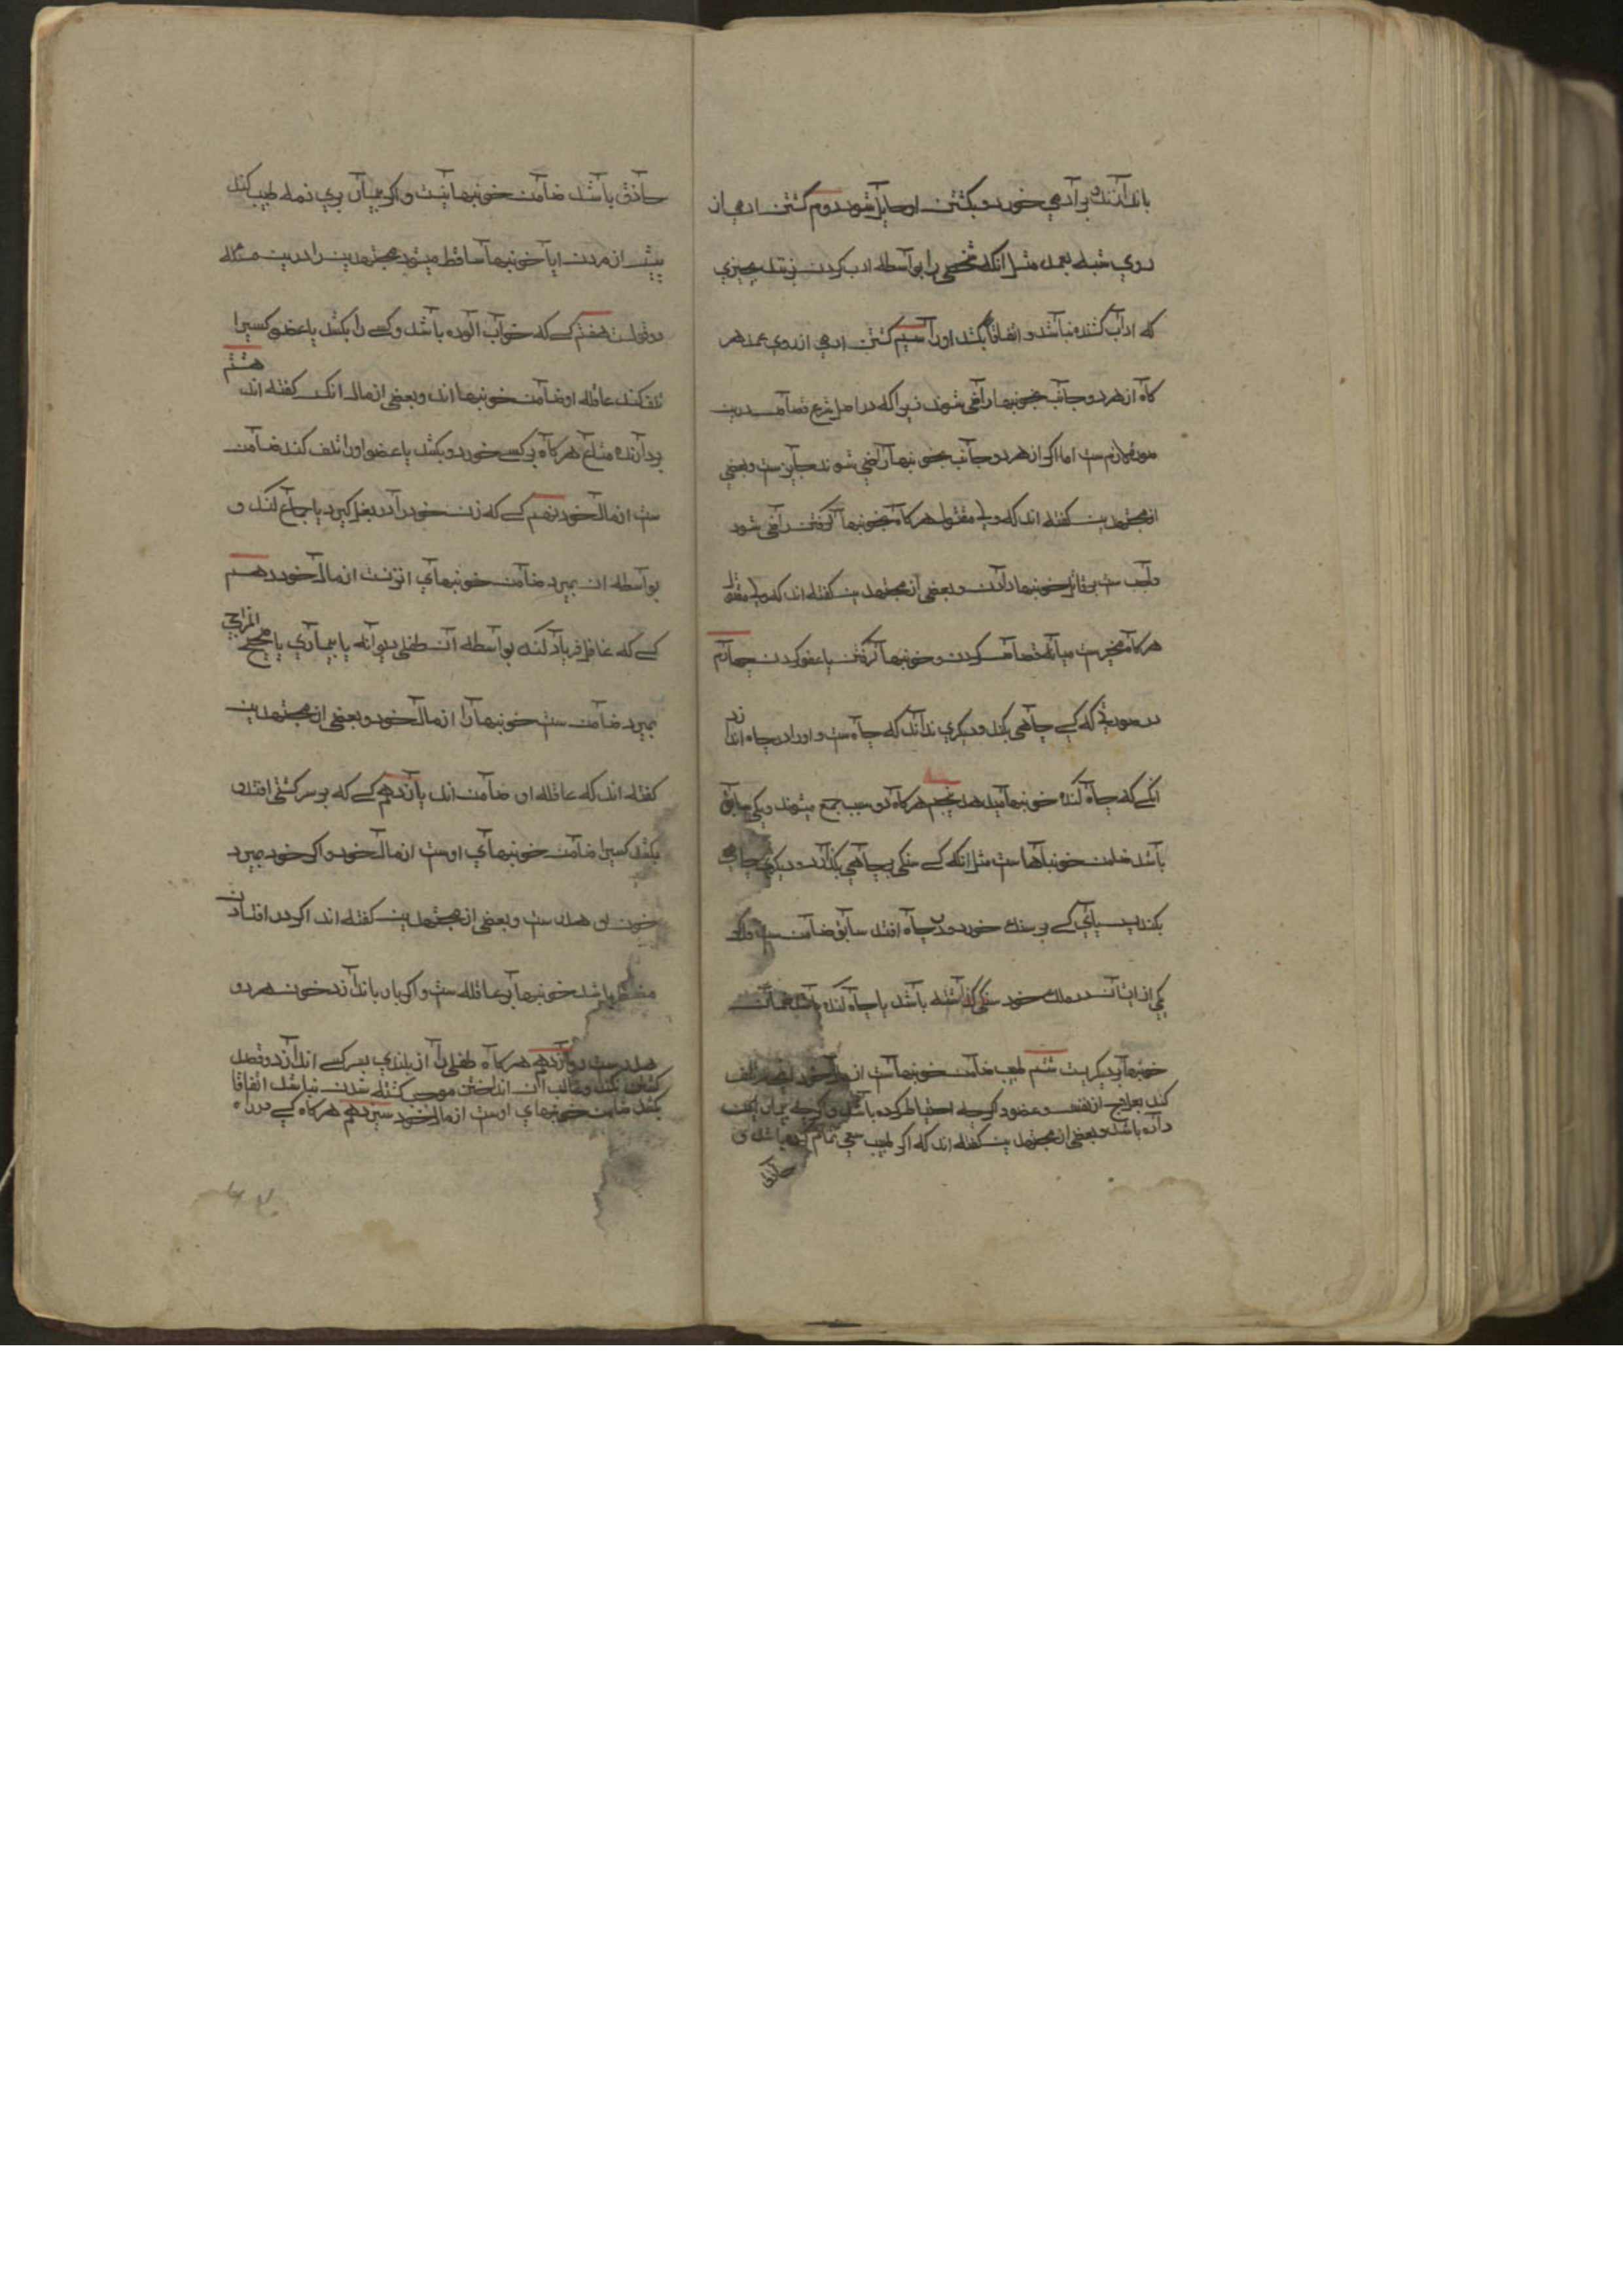 باندازند و بر آدمی خورد و بکشتن او حایل شود دوم کشتن ادمی از
روی شبه بعمد مثل انکه شخصی را بواسطه ادب کردن بزند بچیزی
که ادآب کننده نباشد و اتفاقا بکشد اورا سیم کشتن ادمی از روی عمد هر
کاه از هر دو جانب بخونبها راضی شوند زیرا که در اصل شرع قصاص درین
صورة لازم ست اما اکر از هر دو جانب بخونبها راضی شوند جایز ست و بعضی
از مجتهدین کفته اند که ولی مقتول هر کاه بخونبها کرفتن راضی شود
واجب ست بر قاتل خونبها دادن و بعضی از مجتهدین کفته اند که ولی مقتول
هر کاه مخیر ست میانه قصاص کردن و خونبها کرفتن یا عفو کردن چهارم
در صورتی که کسی چاهی بکند و دیکری نداند که چاه ست و اورا در چاه اندازد
انکسی که چاه کنده خونبها میدهد پنجم هر کاه دو سبب جمع میشوند و یکی سابق
باشد ضامن خونبها ست مثل انکه کسی سنکی بر چاهی بکذارد و دیکری چاهی
بکند پس پای کسی بر سنک خورد و در چاه افتد سابق ضامن ست و اکر
یکی از ایشان در ملک خود سنک کذاشته باشد یا چاه کنده باشد ضمان
خونبها بر دیکریست ششم طبیب ضامن خونبها ست از مال خود انچه تلف
کند بعلاج از نفس و عضو و اکر چه احتیاط کرده باشد و اکر چه بیمار اذن
داده باشد و بعضی از مجتهدین کفته اند که اکر طبیب سعی تمام کرده باشد و
حاذق
حاذق باشد ضامن خونبها نیست و اکر بیمار بری ذمه طبیب کند
پیش از مردن ایا خونبها ساقط میشود مجتهدین را درین مسئله
دو قولست هفتم کسی که خواب آلوده باشد و کسی را بکشد یا عضو کسیرا
تلف کند عاقله او ضامن خونبها اند و بعضی از مال انکس کفته اند هشتم
بردارنده متاع هر کاه بر کسی خورد و بکشد یا عضو اورا تلف کند ضامن
ست از مال خود نهم کسی که زن خود را در بغل کیرد یا جماع کند و
بواسطه ان بمیرد ضامن خونبهای انزنست از مال خود دهم
کسی که غافل فریاد کند بواسطه آن طفلی دیوانه یا بیماری یا صحیح المزاجی
بمیرد ضامن ست خونبها را از مال خود و بعضی از مجتهدین
کفته اند که عاقله او ضامن اند یازدهم کسی که بر سر کشی افتد و
بکشد کسیرا ضامن خونبهای اوست از مال خود و اکر خود میرد
خون او هدر ست و بعضی از مجتهدین کفته اند اکر در افتادن
مضطر باشد خونبها بر عاقله ست و اکر باد باندازد خون هر دو
هدرست دوازدهم هر کاه طفلی را از بلندی بسر کسی اندازد و قصد
کشتن نکند و غالب ان انداختن موجب کشته شدن نباشد اتفاقا
بکشد ضامن خونبهای اوست از مال خود سیزدهم هر کاه کسی در راه